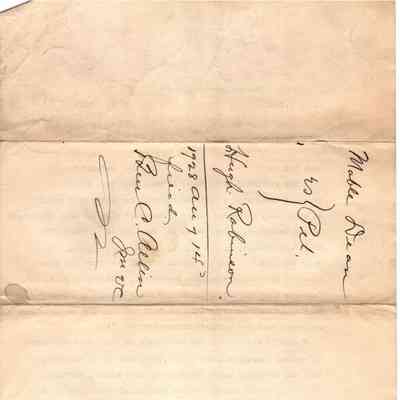 Mable Dean
vs } Pet.
Hugh Robinson.
1928 Aug 14th
filed,
Ben C. Allin